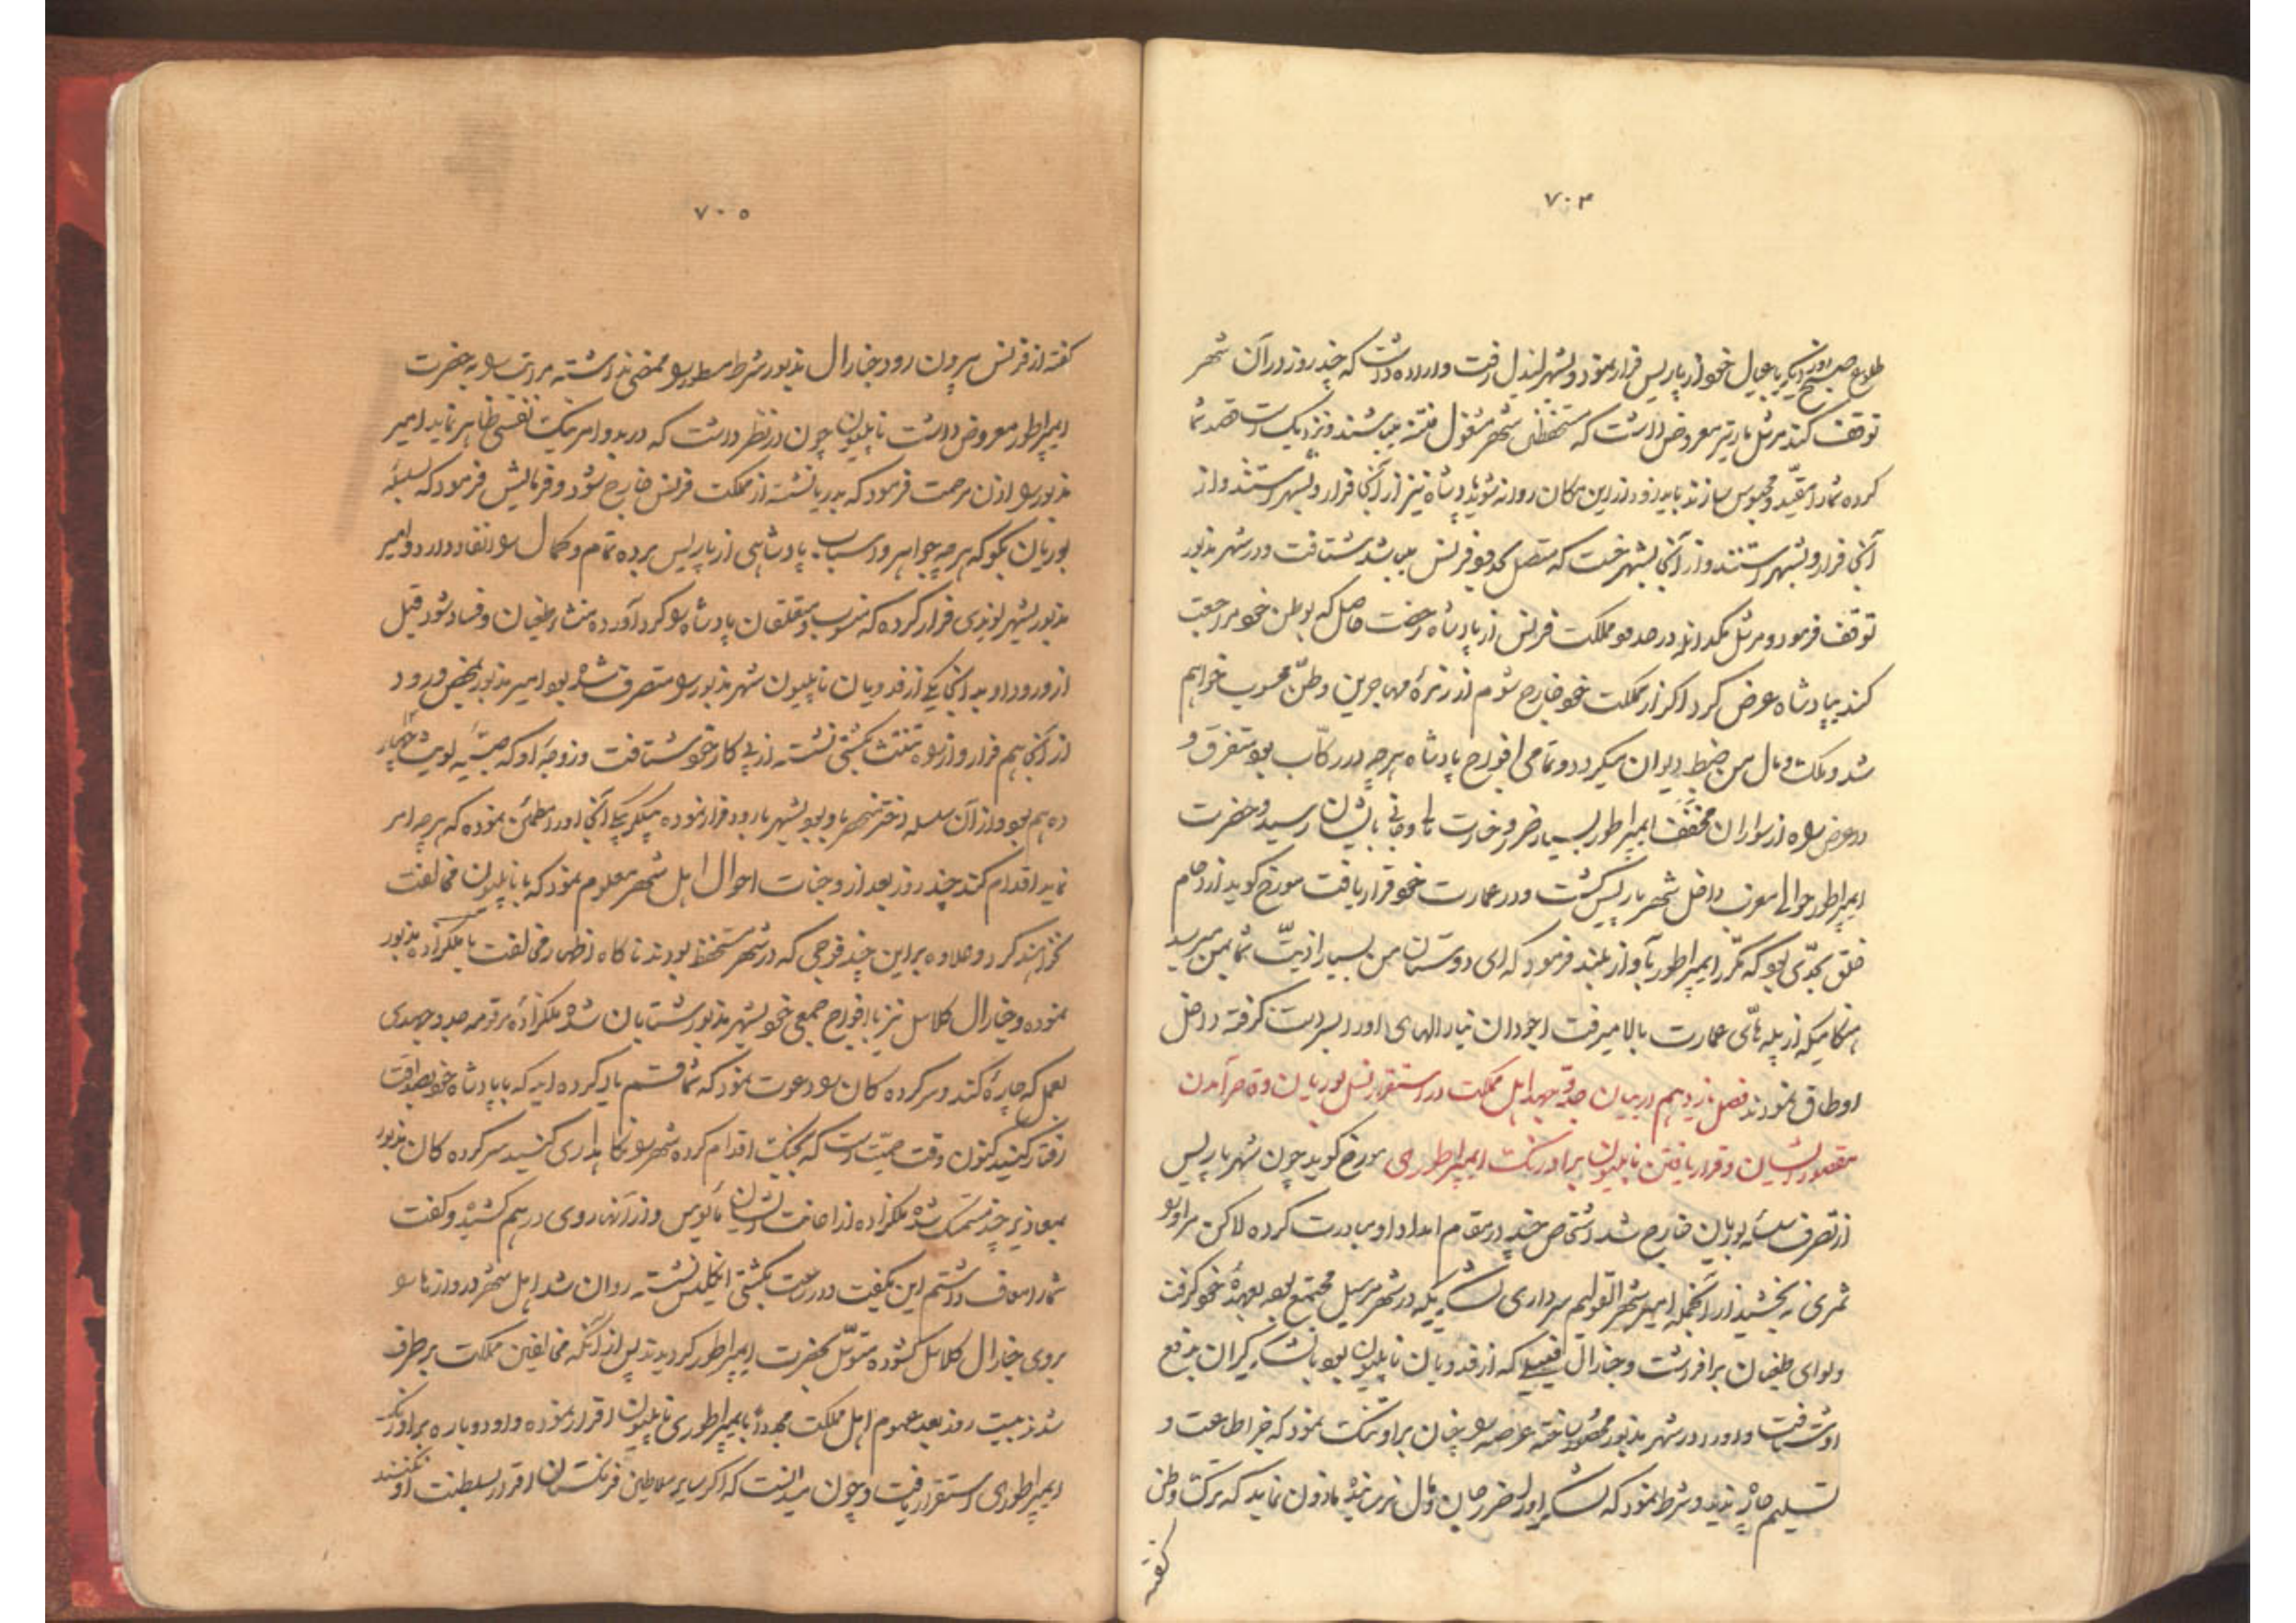 ۷۰۴
طلوع صبح روز دیگر با عیال خود از پاریس فرار نموده و بشهر لیندل رفت و اراده داشت که چند روز در آن شهر
توقف کند مرشل مارتیر معروض داشت که مستحفظان شهر مشغول فتنه میباشند و نزدیکست قصد شما
کرده شما را مقید و محبوس سازند باید زود از این مکان روانه شوید پادشاه نیز از آنجا فرار و بشهر استند و از
آنجا فرار و بشهر استند و از آنجا بشهر خنت که متصل بحدود فرنس میباشد شتافت و در شهر مذبور
توقف فرمود و مرشل مکدانلد در حدود مملکت فرنس از پادشاه رخصت حاصل که بوطن خود مراجعت
کند بپادشاه عرض کرد اگر از مملکت خود خارج شوم از زمرهٔ مهاجرین وطن محسوب خواهم
شد و ملک و مال من ضبط دیوان میگردد و تمامی افواج پادشاه هرچه در رکاب بود متفرق و
در عرض راه از سواران مخفف ایمپراطور بسیار ضرر و خسارت مالی و جانی بایشان رسید و حضرت
ایمپراطور حوالی مغرب داخل شهر پاریس گشت و در عمارت خود قرار یافت مورخ گوید ازدحام
خلق بحدی بود که مکرر ایمپراطور بآواز بلند فرمود که ای دوستان من بسیار اذیت شما بمن میرسد
هنگامیکه از پله های عمارت بالا میرفت اجودان نیارالهای او را بسر دست گرفته داخل
اوطاق نمودند فصل یازدهم در بیان جد و جهد اهل مملکت در استقرار نسل بوربان و قاصر آمدن
مقصود ایشان و قرار یافتن ناپلیون بر اورنگ ایمپراطوری مورخ گوید چون شهر پاریس
از تصرف سلسلهٔ بوربان خارج شد اشخاص چند در مقام امداد او مبادرت کرده لاکن مر او را
ثمری نه بخشید از آنجمله امیر شهر انقولیم سرداری لشکریکه در شهر مرسیل مجتمع بود بعهدهٔ خود گرفت
و لوای طغیان برافراشت و جنارال که از فدویان ناپلیون بود با لشکر گران بدفع
او شتافت و او را در شهر مذبور محصور ساخته عرصه را چنان بر او تنگ نمود که جز اطاعت و
تسلیم چاره ندید و شرط نمود که لشکر او را ضرر جان و مال نرسانیده ماذون نماید که ترک وطن
گفته
۷۰۵
گفته از فرنس بیرون رود جنارال مذبور شرط مسطور را ممضی نداشته مراتب را به حضرت
ایمپراطور معروض داشت ناپلیون چون در نظر داشت که در بدو امر نیک نفسی ظاهر نماید امیر
مذبور را اذن مرحمت فرمود که بدریا نشسته از مملکت فرنس خارج شود و فرمایش فرمود که بسلسلهٔ
بوربان بگو که هرچه جواهر و اسباب پادشاهی از پاریس برده تمام و کمال را انفاد دارد و امیر
مذبور بشهر بوندی فرار کرده که منسوب و متعلقان پادشاه را گرد آورده منشاء طغیان و فساد شود قبل
از ورود او بدانجا یکی از فدویان ناپلیون شهر مذبور را متصرف شده بود امیر مذبور بمحض ورود
از آنجا هم فرار و از راه تنتث بکشتی نشسته از پی کار خود شتافت و زوجهٔ او که صبیهٔ لویث چهار
دهم بود و از آن سلسله دختر منحصر باو بود بشهر باردو فرار نموده بیگلربیگی آنجا او را مطمئن نموده که هرچه امر
نماید اقدام کند چند روز بعد از وجنات احوال اهل شهر معلوم نمود که با ناپلیون مخالفت
نخواهند کرد و علاوه بر این چند فوجی که در شهر مستحفظ بودند ناگاه اظهار مخالفت با ملکزاده مذبور
نموده و جنارال کلاسل نیز با افواج جمعی خود بشهر مذبور شتابان شده ملکزادهٔ مرقومه جد و جهدی
بعمل که چارهٔ کند و سرکرده کان را دعوت نمود که شما قسم یاد کرده اید که با پادشاه خود بصداقت
رفتار کنید کنون وقت حمیت است که بجنگ اقدام کرده شهر را نگاهداری کنید سرکرده کان مذبور
بمعاذیر چند متمسک شده ملکزاده از اعانت ایشان مأیوس و از آنها روی در هم کشیده و گفت
شما را معاف داشتم این بگفت و در ساعت بکشتی انگلیس نشسته روان شد اهل شهر دروازها را
بروی جنارال کلاسل گشوده متوسل بحضرت ایمپراطور گردیدند پس از آنکه مخالفین مملکت برطرف
شدند بیست روز بعد عموم اهل مملکت مجدداً بایمپراطوری ناپلیون اقرار نموده و او دوباره بر اورنگ
ایمپراطوری استقرار یافت و چون میدانست که اگر سایر سلاطین فرنگستان اقرار بسلطنت او نکنند